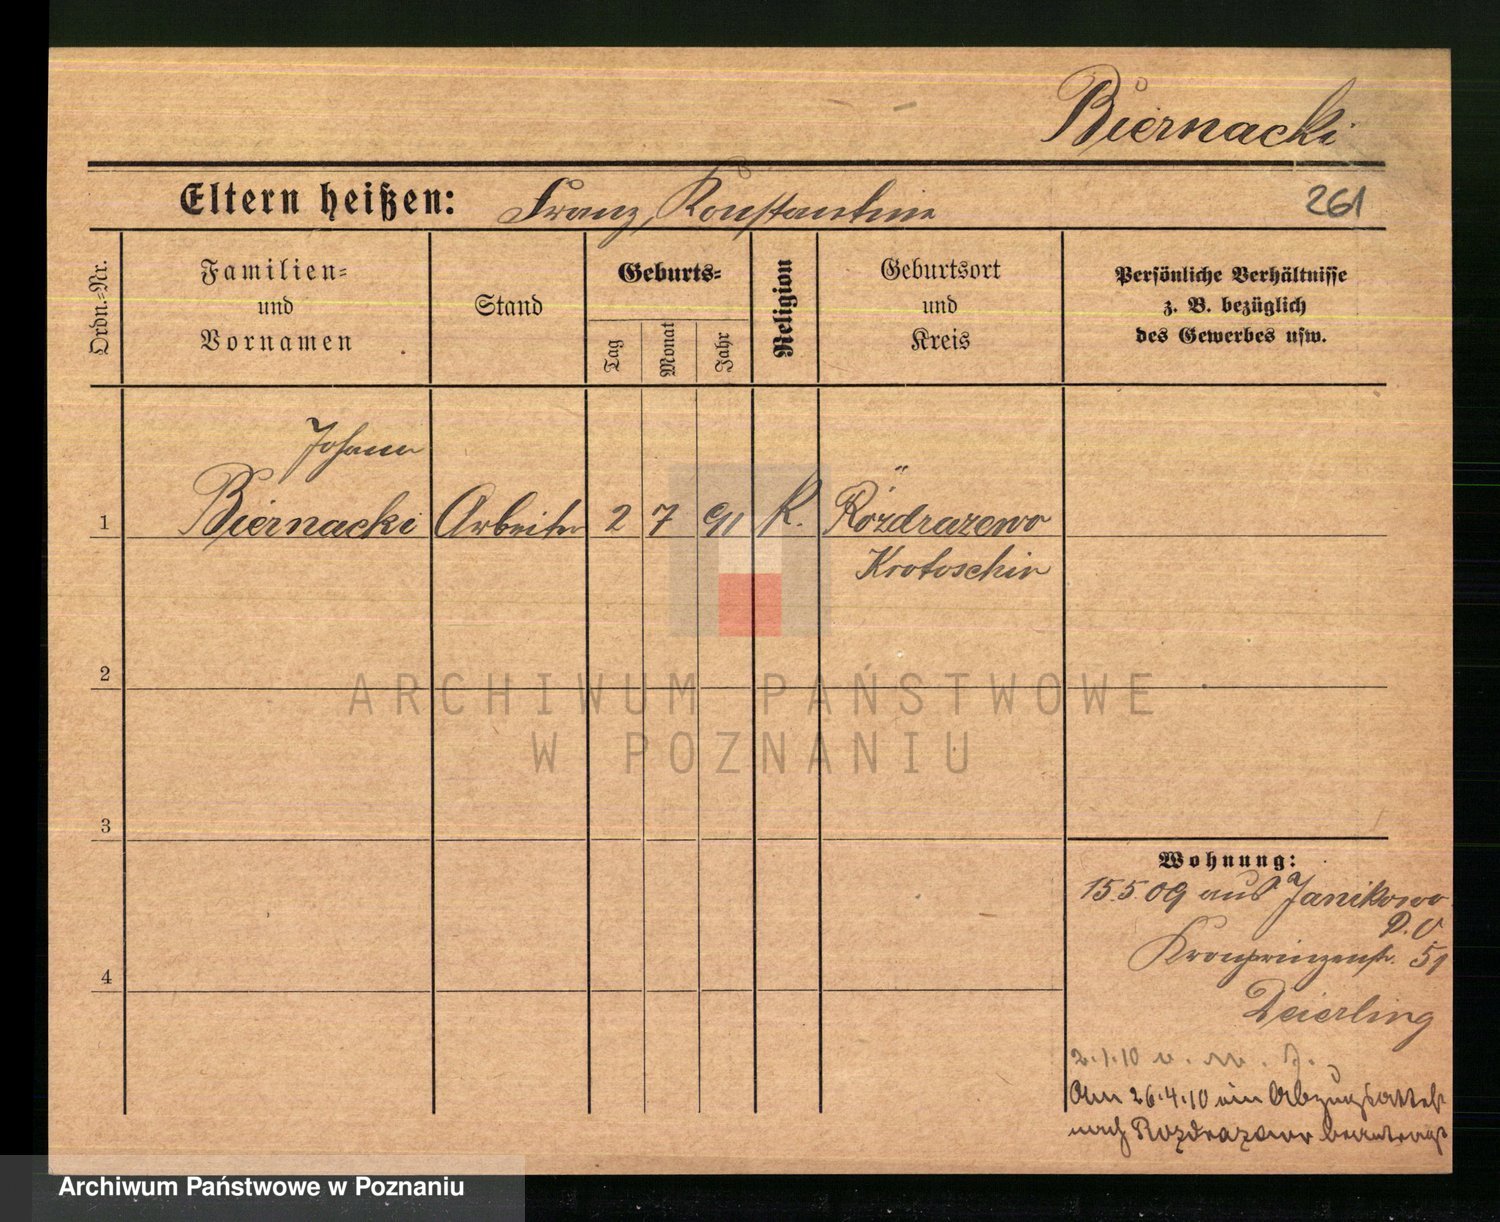 Biernacki
Eltern heißen: Franz, Konstantine
261
Ordn.-Nr.
Familien-
und
Vornamen
Stand
Geburts-
Tag
Monat
Jahr
Religion
Geburtsort
und
Kreis
Persönliche Verhältnisse
z. B. bezüglich
des Gewerbes usw.
Johann
1 Biernacki Arbeiter 2 7 91 K. Rozdrazewo
Krotoschin
2
ARCHIWUM PAŃSTWOWE
W POZNANIU
3
Wohnung:
15.5.09 aus Janikowo
P. O
Kronprinzenstr. 51
4
Deierling
2.1.10
Am 26.4.10 ein Abzugsattest
nach Rozdrazewo beantragt
Archiwum Państwowe w Poznaniu